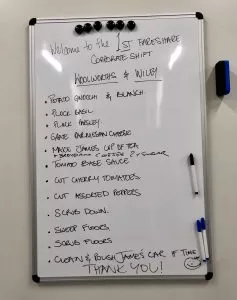 Welcome to the 1ST FARESHARE
CORPORATE SHIFT
WOOLWORTHS & WILEY
• POTATO GNOCCHI & BLANCH
• PLUCK BASIL
• PLUCK PARSLEY
• GRATE PARMESAN CHEESE
• MAKE JAMES CUP OF TEA
+ COFFEE 2 x SUGAR
• TOMATO BASE SAUCE
• CUT CHERRY TOMATOES
• CUT ASSORTED PEPPERS
• SCRUB DOWN
• SWEEP FLOORS
• SCRUB FLOORS
• CLEAN & POLISH JAME'S CAR IF TIME
THANK YOU!